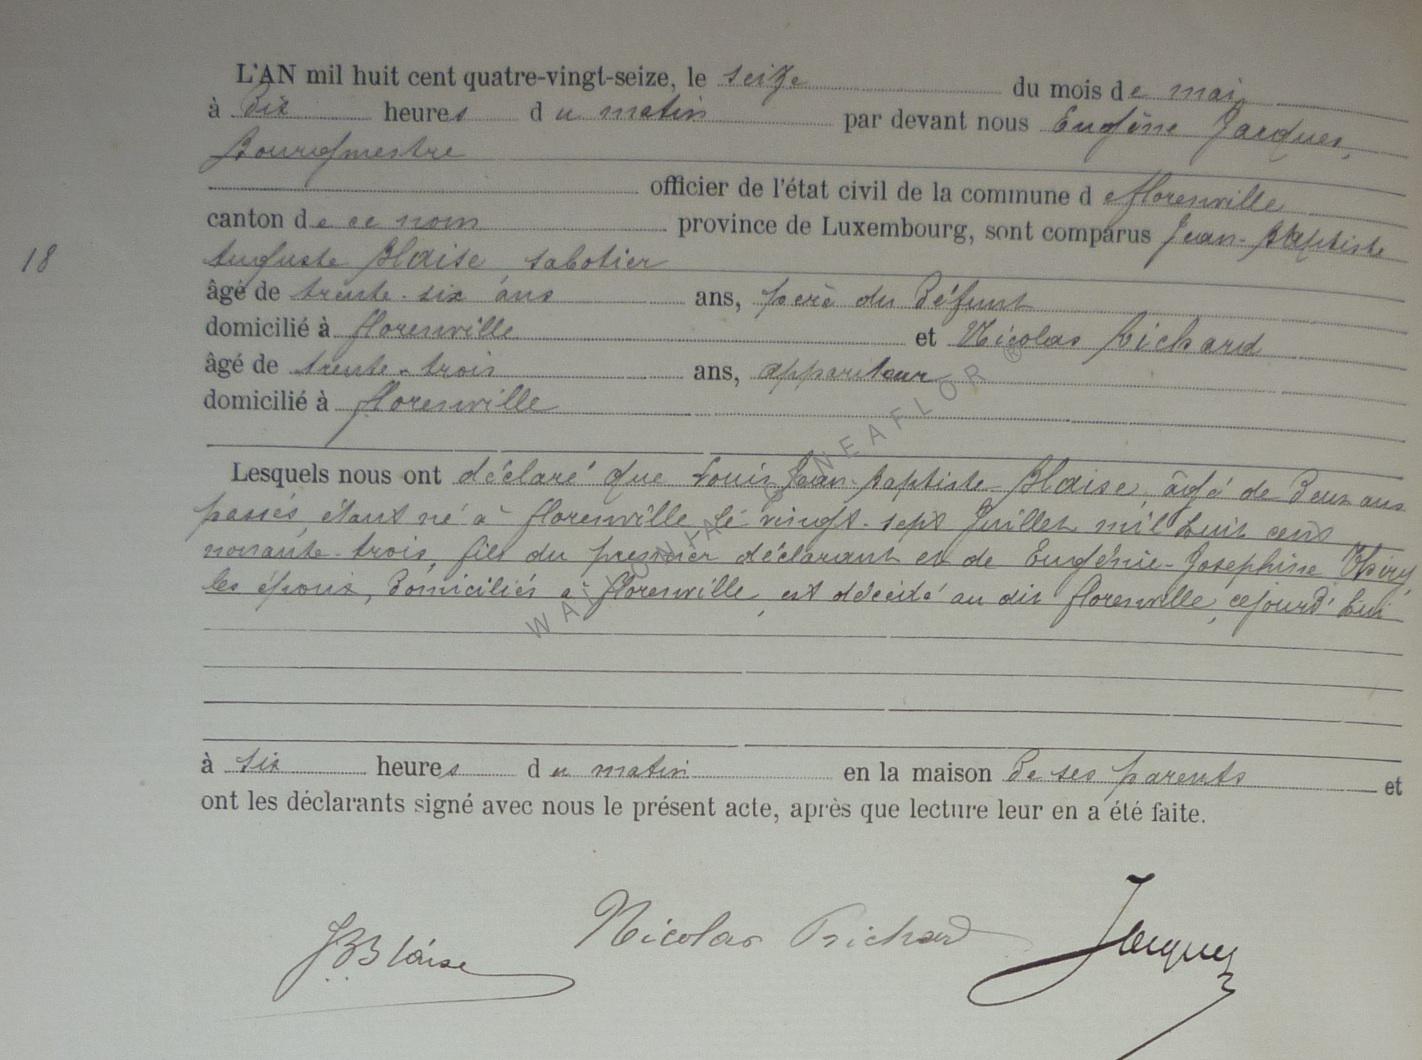 L'AN mil huit cent quatre-vingt-seize, le seize du mois de mai
à dix heures du matin par devant nous Eugène Jacques,
Bourgmestre
officier de l'état civil de la commune de Florenville
canton de ce nom province de Luxembourg, sont comparus Jean-Baptiste
18
Auguste Blaise, sabotier
âgé de trente-six ans ans, père du défunt
domicilié à Florenville et Nicolas Richard
âgé de trente-trois ans, appariteur
domicilié à Florenville
Lesquels nous ont déclaré que Louis Jean-Baptiste Blaise, âgé de deux ans
passés, étant né à Florenville le vingt-sept Juillet mil huit cent
nonante-trois, fils du premier déclarant et de Eugénie-Joséphine Thiry
les époux, domiciliés à Florenville, est décédé au dit Florenville, cejourd'hui
à six heures du matin en la maison de ses parents et
ont les déclarants signé avec nous le présent acte, après que lecture leur en a été faite.
JBBlaise Nicolas Richard Jacques
WALLONIA GENEAFLOR ®